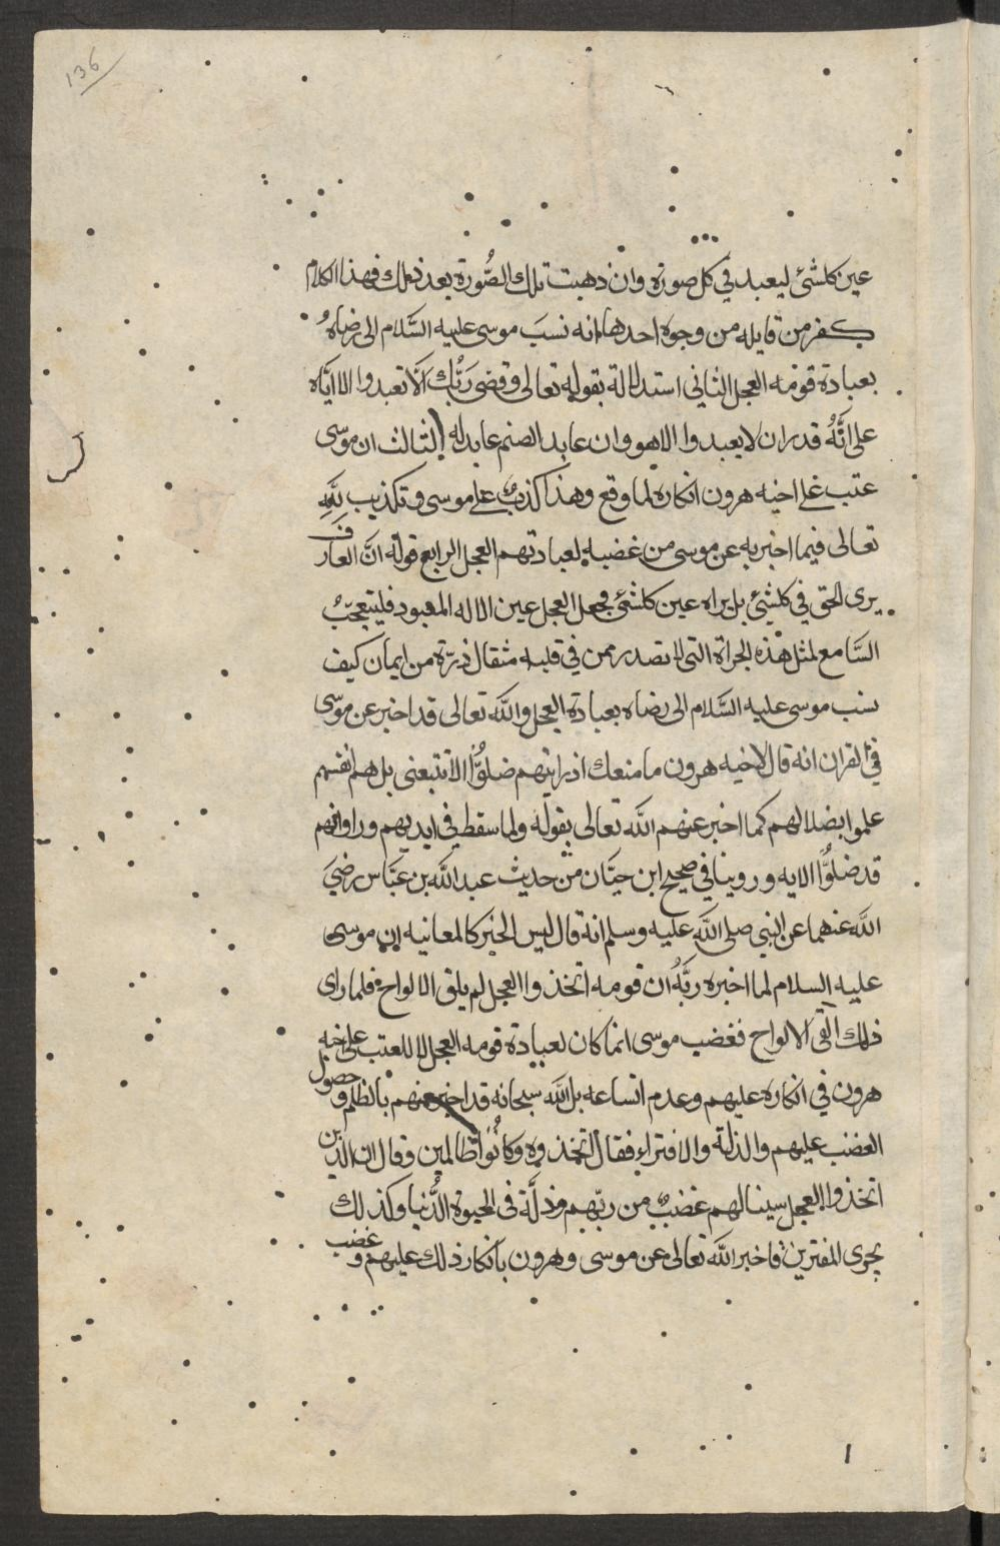 136
عين كلشئ ليعبد في كل صورة وان ذهبت تلك الصُّورة بعد ذلك فهذا الكلام
كفر من قايله من وجوه احدها انه نسبَ موسى عليه السَّلام الى رضاهُ
بعبادة قومه العجل الثاني استدلاله بقوله تعالى وقضى رَبُّك اَلَّا تعبدوا الا ايّاه
على انَّهُ قدر ان لا يعبدوا الا هو وان عابد الصنم عابد له الثالث ان موسى
عتب على اخيه هرون انكاره لما وقع وهذا كذبٌ على موسى وتكذيب لِلّهِ
تعالى فيما اخبر به عن موسى من غضبه لعبادتهم العجل الرابع قوله انَّ العارف
يرى الحق في كلشئ بل يراه عين كلشئ فجعل العجل عين الاله المعبود فليتعجّبُ
السَّامع لمثل هذه الجراة التي لا تصدر ممن في قلبه مثقال ذرّة من ايمان كيف
نسب موسى عليه السَّلام الى رضاه بعبادة العجل واللّه تعالى قد اخبر عن موسى
في القران انه قال لاخيه هرون ما منعك اذ رايتهم ضلُوّا الا تتبعنى بل هم انفسهم
علموا بضلالهم كما اخبر عنهم اللّه تعالى بقوله ولما سقط في ايديهم وراوا انهم
قد ضلوُّا الايه وروينا في صحيح ابن حبَّان من حديث عبد اللّه بن عبَّاس رضيَ
اللّه عنهما عن النبي صلى اللّه عليه وسلم انه قال ليس الخبر كالمعاينه ان موسى
عليه السلام لما اخبره ربَّهُ ان قومه اتخذوا العجل لم يلق الالواح فلما راى
ذلك القى الالواح فغضب موسى انما كان لعبادة قومه العجل لا للعتب على اخيه
هرون في انكاره عليهم وعدم اتساعه بل اللّه سبحانه قد اخبر عنهم بالظلم وحصول
الغضب عليهم والذلة والافتراء فقال اتخذوه وكانُوا ظالمين وقال ان الذين
اتخذوا العجل سينالهم غضبٌ من ربّهم وذلَّة فى الحيوة الدُّنيا وكذلك
نجزى المفترين فاخبر اللّه تعالى عن موسى وهرون بانكار ذلك عليهم وغضب